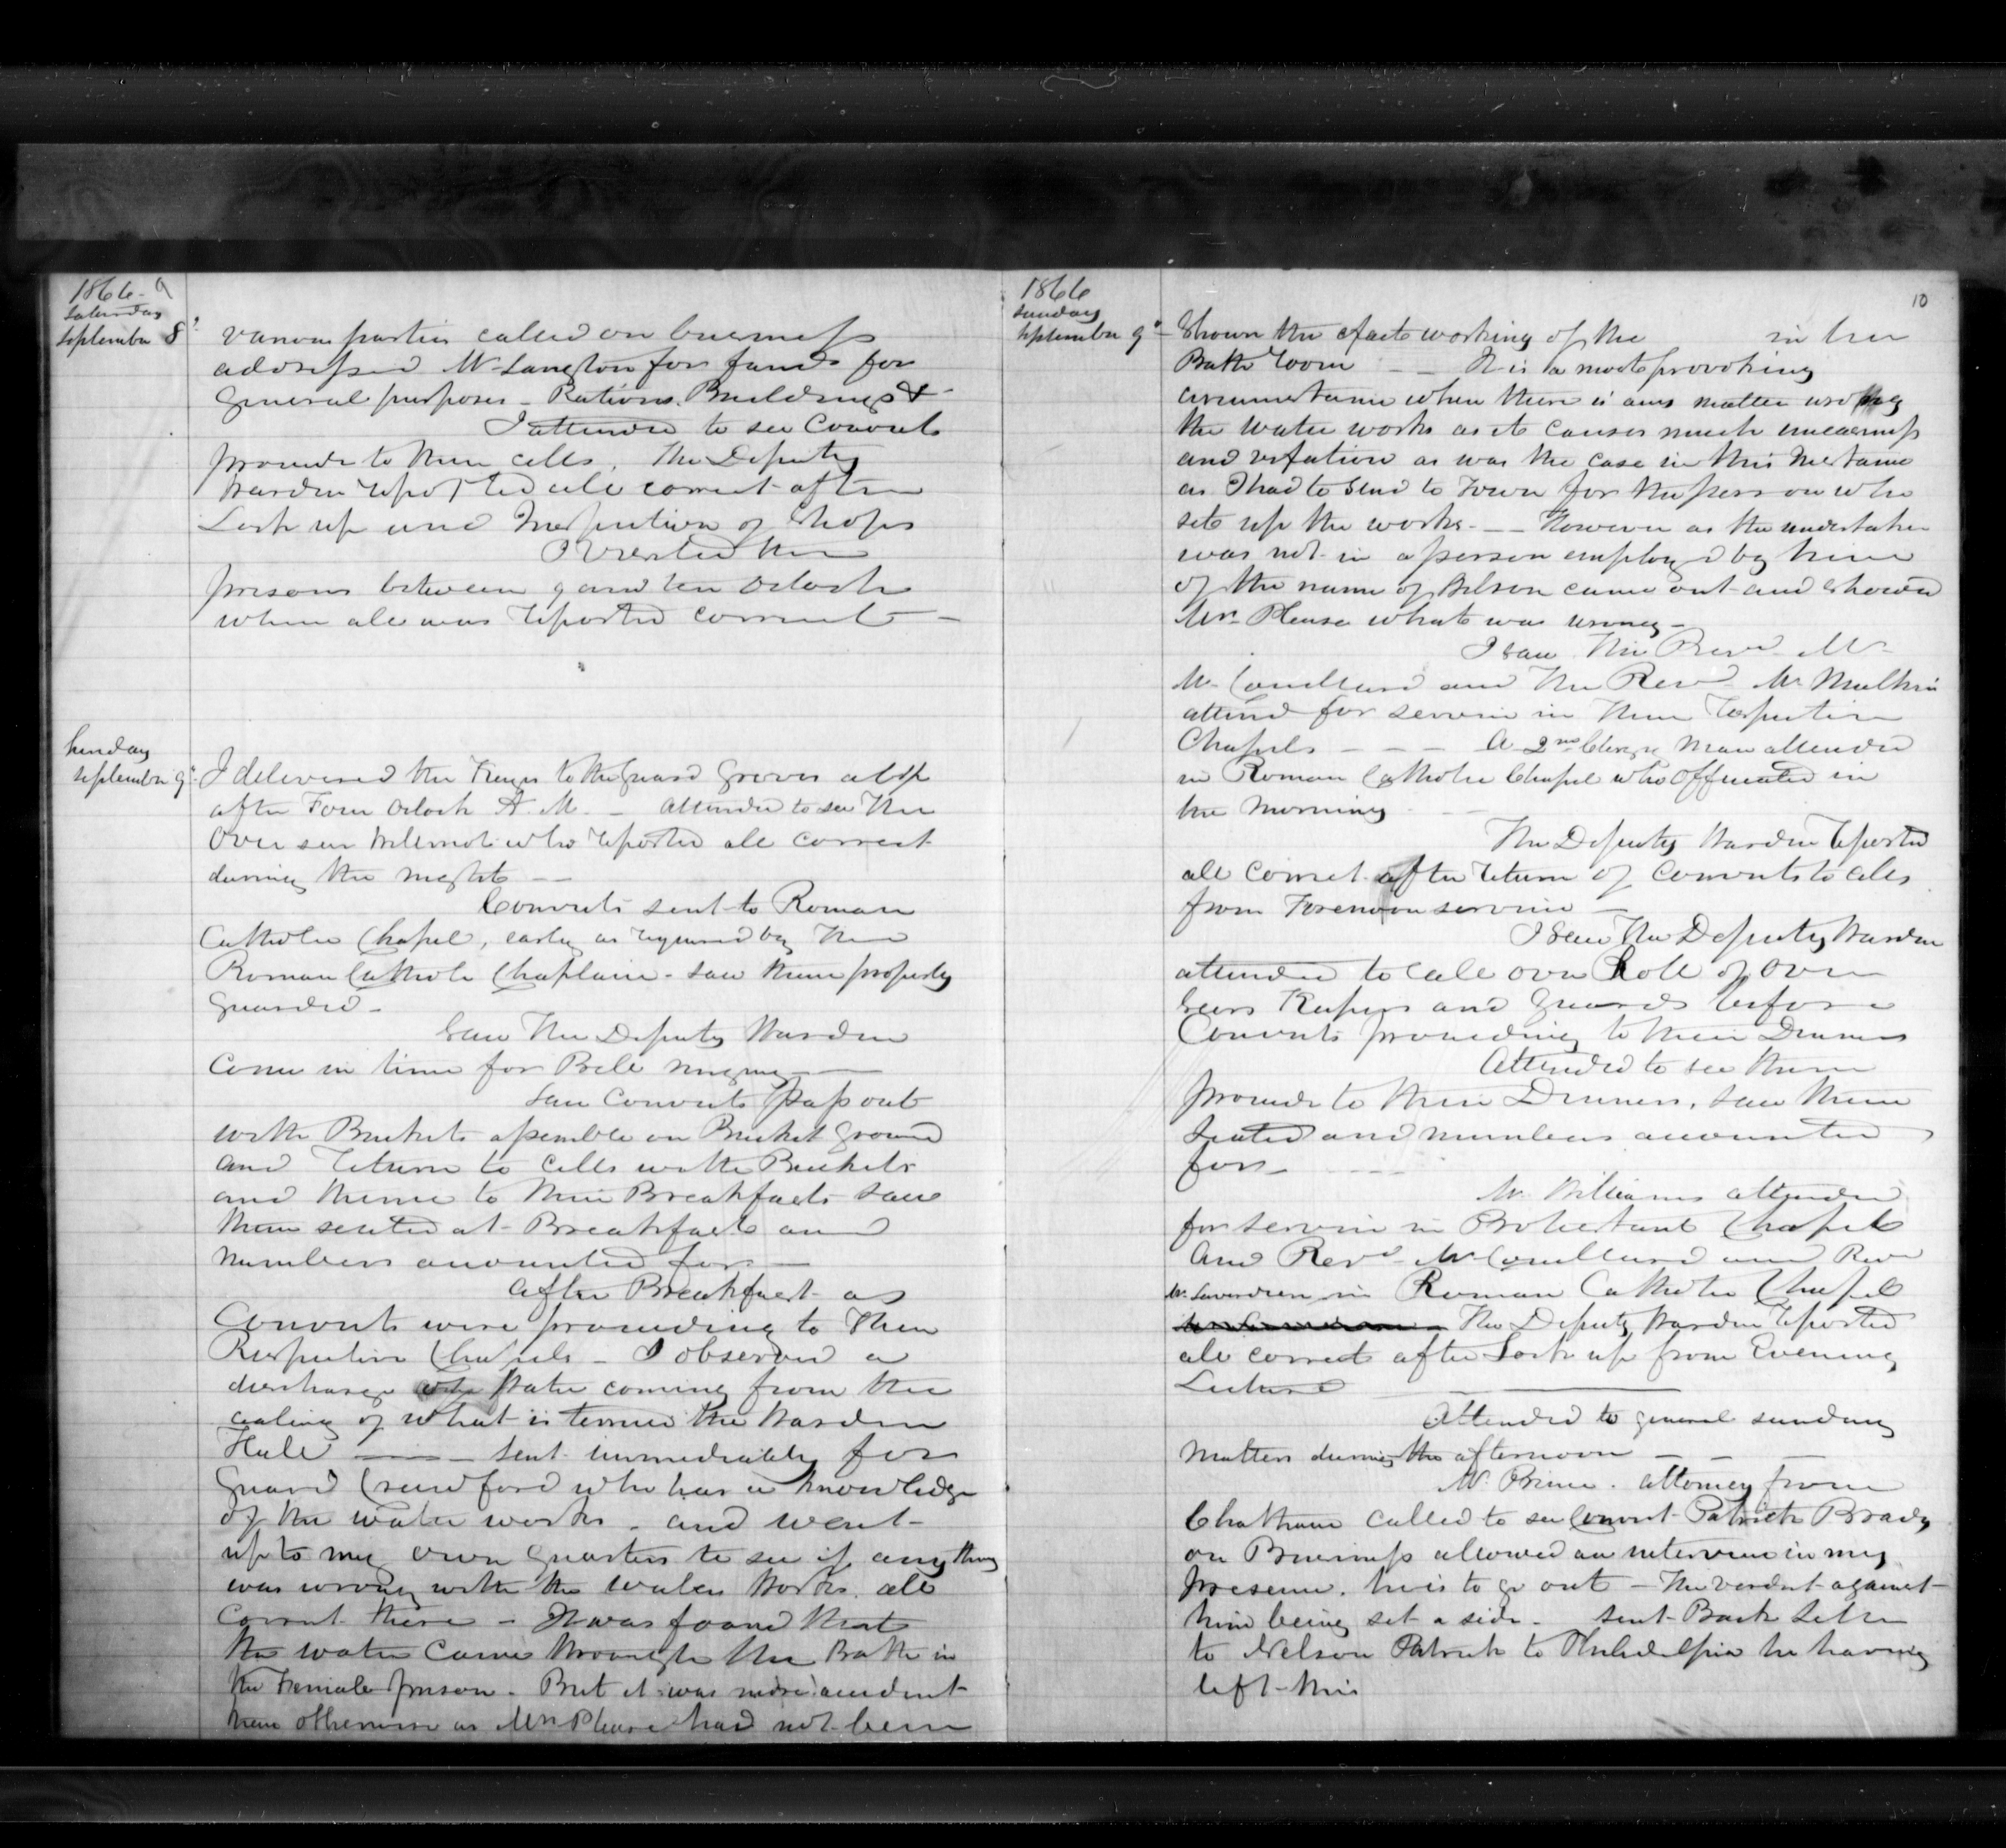 1866 - 9
Saturday
September 8
various parties called on business
addressed Mr Langton for funds for
General purposes - Rations. Buildings &
I attended to see Convicts
proceed to their cells. The Deputy
Warden reported all correct after
Lock up and Inspection of Shops
I Visited the
prisons between 9 and ten Oclock
when all was reported correct -
Sunday
September 9
I delivered the Keys to the Guard Graves at ½ p
after Four Oclock A. M. - attended to see the
Over seer Wilmot who reported all correct
during the night -
Convicts sent to Roman
Catholic Chapel, early as required by the
Roman Catholic Chaplain - saw them properly
guarded -
Saw The Deputy Warden
Come in time for Bell ringing -
Saw Convicts pass out
with Buckets assemble on Bucket Ground
and return to cells with Buckets
and thence to their Breakfasts saw
them seated at Breakfast and
numbers accounted for -
After Breakfast as
Convicts were proceeding to their
Respective Chapels - I observed a
discharge of Water coming from the
cealing of what is termed the Warden
Hall - sent immediately for
Guard Crawford who has a knowledge
of the water works - and went
up to my own Quarters to see if any thing
was wrong with the water works. all
Correct there - It was found that
the water came through the Bath in
the Female prison - But it was more accident
than otherwise as Mrs Please had not been
1866
Sunday
September 9
10
Shown the exact working of the in her
Bath room - - It is a most provoking
circumstance when there is any matter wrong
the water works as it causes much uneasiness
and vexation as was the case in this Instance
as I had to send to Town for the person who
sets up the works - - However as the undertaker
was not in a person employed by him
of the name of Bilson came out and showed
Mrs Please what was wrong -
I saw The Revd Mr
Mr Coulland and The Revd Mr Mulkin
attend for service in their respective
Chapels - - - A 2nd Clergy Man attended
in Roman Catholic Chapel who Officiated in
the Morning
The Deputy Warden reported
all correct after return of Convicts to cells
from Forenoon service -
I saw The Deputy Warden
attended to call over Roll of Over
seers Keepers and Guards before
Convicts proceeding to their Dinners
Attended to see them
proceed to their Dinners, saw them
Seated and numbers accounted
for -
Mr Williams attended
for service in Protestant Chapel
And Revd Mr Coulland and Revd
in Roman Catholic Chapel
The Deputy Warden reported
all correct after Lock up from Evening
Lecture
Attended to general sunday
Matters during the afternoon - -
Mr Prince. attorney from
Chatham called to see Convict Patrick Brady
on Business allowed an interview in my
presence. he is to go out - The verdict against
him being set a side - sent Back Letter
to Nelson Patrick to Philadelphia he having
left this